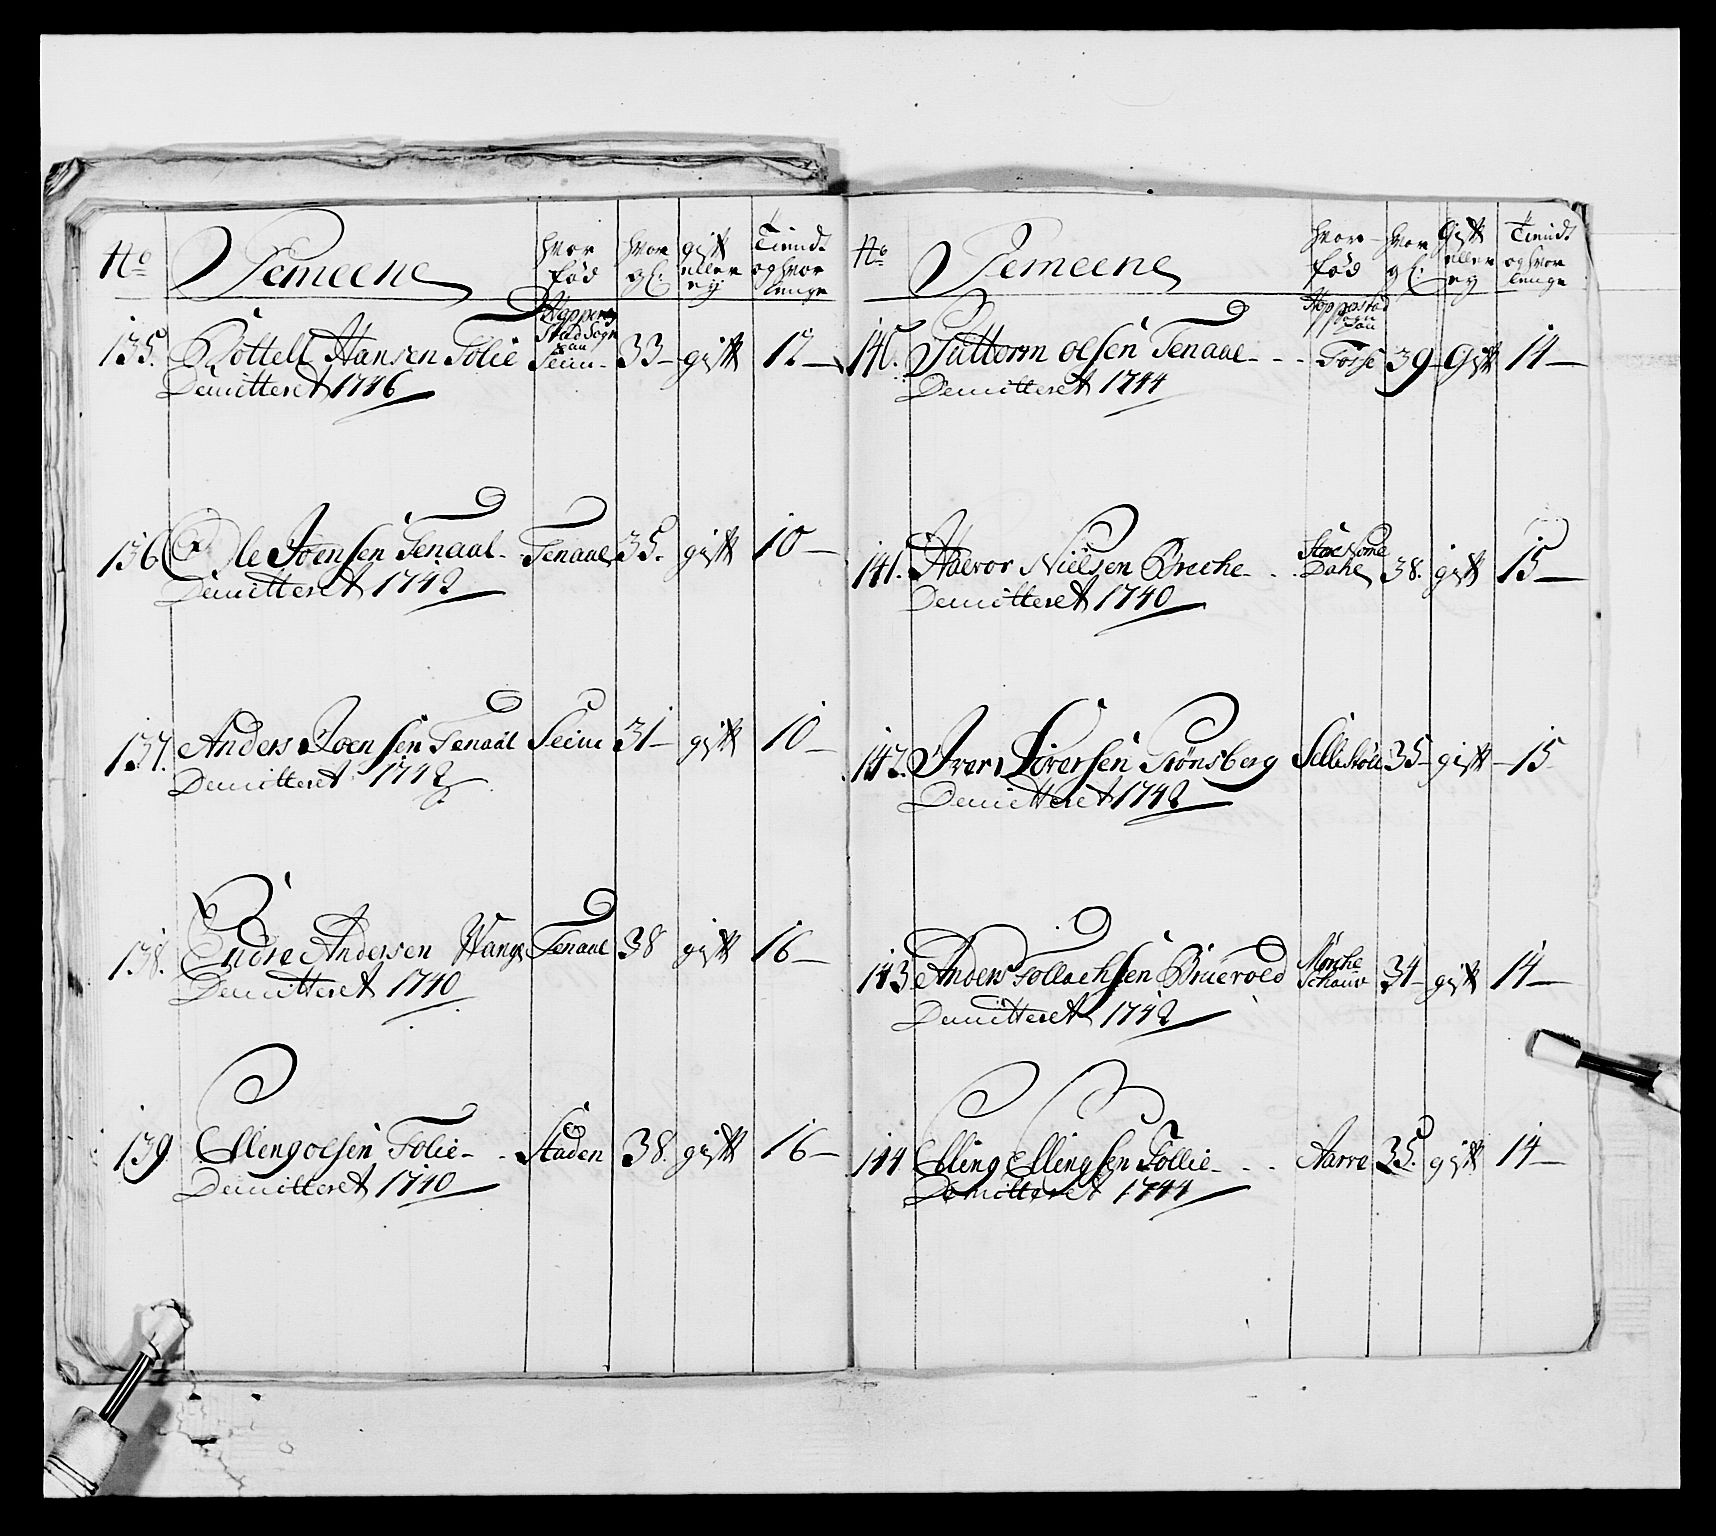 No Gemeene hvor fød hvor gl: gift eller ey Tiendt og hvor lenge
135. Kottell Hansen Folie Seim 33 gift 12
Demitteret 1746
136 Ole Joensen Tenaal Tenaal 35. gift 10
Demitteret 1742
137. Anders Joensen Tenaal Seim 31 gift 10
Demitteret 1742
138. Endre Andersen Wang Tenaal 38 gift 16
Demitteret 1740
139 Elleng olsen Folie Staden 38. gift 16
Demitteret 1740
No Gemeene hvor fød hvor gl: Gift eller ey Tiendt og hvor lenge
140. Guttorm olsen Tenaal Hoppestad Sogn 39 Gift 14
Demitteret 1744
141. Halvor Nielsen Breche Dahl 38. gift 15
Demitteret 1740
142. Iver Siversen Trønsberg 35 gift 15
Demitteret 1742
143 Anders Follachsen Bruevold 34 gift 14
Demitteret 1742
144 Elling Ellingsen Follie Aarre 35. gift 14
Demitteret 1744